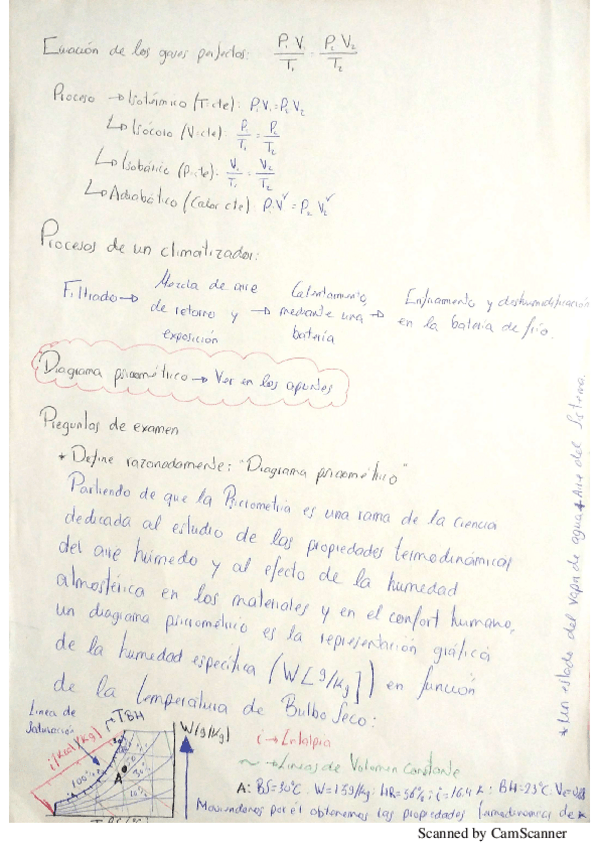 Ecuación de los gases perfectos: P₁ V₁ / T₁ = P₂ V₂ / T₂
Proceso → Isotérmico (T=cte): P₁V₁=P₂V₂
↳ Isócoro (V=cte): P₁/T₁ = P₂/T₂
↳ Isobárico (P=cte): V₁/T₁ = V₂/T₂
↳ Adiabático (Calor cte) P₁V₁^γ = P₂V₂^γ
Procesos de un climatizador:
Filtrado → Mezcla de aire de retorno y exposición → Calentamiento mediante una batería → Enfriamiento y deshumidificación en la batería de frío.
Diagrama psicrométrico → Ver en los apuntes
Preguntas de examen
* Define razonadamente: "Diagrama psicrométrico"
Partiendo de que la Psicrometría es una rama de la ciencia
dedicada al estudio de las propiedades termodinámicas
del aire húmedo y al efecto de la humedad
atmosférica en los materiales y en el confort humano,
un diagrama psicrométrico es la representación gráfica
de la humedad específica (W[g/kg]) en función
de la temperatura de Bulbo Seco:
Línea de
Saturación
TBH
i(kcal/kg)
100%
A
W[g/kg]
i → Entalpía
~ → Líneas de Volumen Constante
A: BS=30°C, W=159/kg; HR=56%; i=16,4 k ; BH=23°C, Ve=0,88
Moviendonos por él obtenemos las propiedades termodinámicas de *
* un estado del vapor de agua + Aire del Sistema.
Scanned by CamScanner